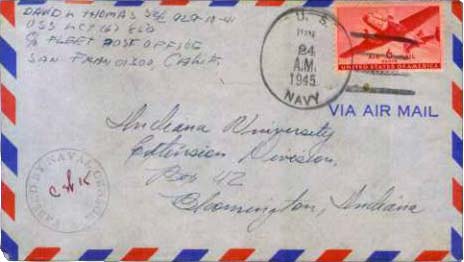 DAVID W THOMAS
USS LCT (6)
c/o FLEET POST OFFICE
SAN FRANCISCO, CALIF.
U. S.
JUN
24
A.M.
1945
NAVY
AIR MAIL
6
UNITED STATES OF AMERICA
VIA AIR MAIL
Indiana University
Extension Division,
Box 42
Bloomington, Indiana
PASSED BY NAVAL CENSOR